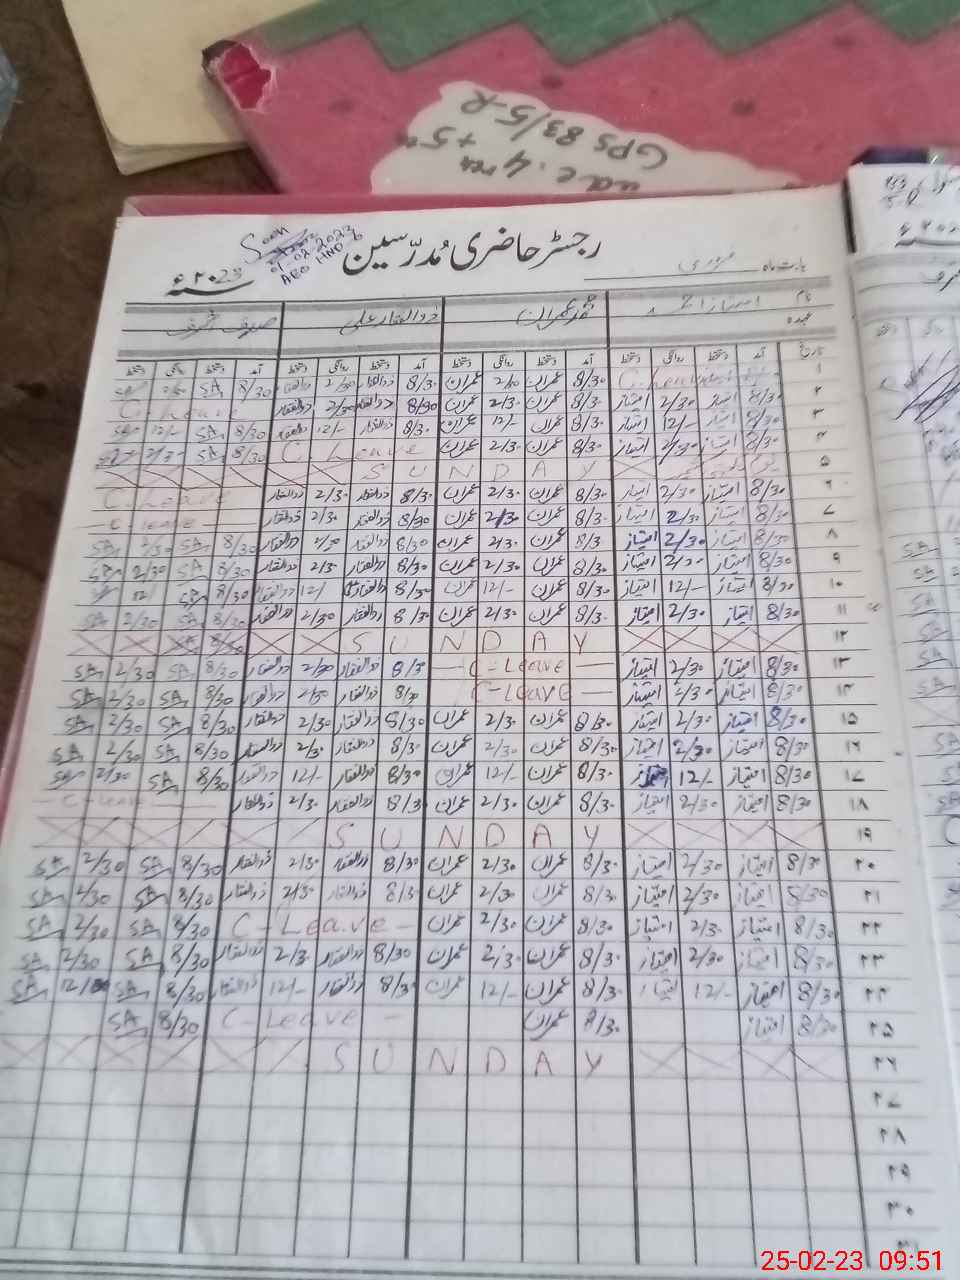 GPS 83/5-R
رجسٹر حاضری مدرسین
بابت ماہ فروری
۲۰23ء
Seen
01-02-2023
AEO HND
نام امتیاز احمد محمد عمران ذوالفقار علی
عہدہ
تاریخ آمد دستخط روانگی دستخط آمد دستخط روانگی دستخط آمد دستخط روانگی دستخط آمد دستخط روانگی دستخط
۱ C. Leave 8/30 عمران 2/30 عمران 8/30 ذوالفقار 2/30 ذوالفقار 8/30 SA
۲ 8/30 امتیاز 2/30 امتیاز 8/30 عمران 2/30 عمران 8/30 ذوالفقار 2/30 ذوالفقار C. Leave
۳ 8/30 امتیاز 12/- امتیاز 8/30 عمران 12/- عمران 8/30 ذوالفقار 12/- ذوالفقار 8/30 SA 12/- SA
۴ 8/30 امتیاز 2/30 امتیاز 8/30 عمران 2/30 عمران C. Leave 8/30 SA 2/30 SA
۵ S U N D A Y
۶ 8/30 امتیاز 2/30 امتیاز 8/30 عمران 2/30 عمران 8/30 ذوالفقار 2/30 ذوالفقار C. Leave
۷ 8/30 امتیاز 2/30 امتیاز 8/30 عمران 2/30 عمران 8/30 ذوالفقار 2/30 ذوالفقار C. Leave
۸ 8/30 امتیاز 2/30 امتیاز 8/30 عمران 2/30 عمران 8/30 ذوالفقار 2/30 ذوالفقار 8/30 SA 2/30 SA
۹ 8/30 امتیاز 2/30 امتیاز 8/30 عمران 2/30 عمران 8/30 ذوالفقار 2/30 ذوالفقار 8/30 SA 2/30 SA
۱۰ 8/30 امتیاز 12/- امتیاز 8/30 عمران 12/- عمران 8/30 ذوالفقار 12/- ذوالفقار 8/30 SA 12/
۱۱ 8/30 امتیاز 2/30 امتیاز 8/30 عمران 2/30 عمران 8/30 ذوالفقار 2/30 ذوالفقار 8/30 SA 2/30 SA
۱۲ S U N D A Y
۱۳ 8/30 امتیاز 2/30 امتیاز C-Leave 8/30 ذوالفقار 2/30 ذوالفقار 8/30 SA 2/30 SA
۱۴ 8/30 امتیاز 2/30 امتیاز C-Leave 8/30 ذوالفقار 2/30 ذوالفقار 8/30 SA 2/30 SA
۱۵ 8/30 امتیاز 2/30 امتیاز 8/30 عمران 2/30 عمران 8/30 ذوالفقار 2/30 ذوالفقار 8/30 SA 2/30 SA
۱۶ 8/30 امتیاز 2/30 امتیاز 8/30 عمران 2/30 عمران 8/30 ذوالفقار 2/30 ذوالفقار 8/30 SA 2/30 SA
۱۷ 8/30 امتیاز 12/- امتیاز 8/30 عمران 12/- عمران 8/30 ذوالفقار 12/- ذوالفقار 8/30 SA 2/30 SA
۱۸ 8/30 امتیاز 2/30 امتیاز 8/30 عمران 2/30 عمران 8/30 ذوالفقار 2/30 ذوالفقار C-Leave
۱۹ S U N D A Y
۲۰ 8/30 امتیاز 2/30 امتیاز 8/30 عمران 2/30 عمران 8/30 ذوالفقار 2/30 ذوالفقار 8/30 SA 2/30 SA
۲۱ 8/30 امتیاز 2/30 امتیاز 8/30 عمران 2/30 عمران 8/30 ذوالفقار 2/30 ذوالفقار 8/30 SA 2/30 SA
۲۲ 8/30 امتیاز 2/30 امتیاز 8/30 عمران 2/30 عمران C-Leave 8/30 SA 2/30 SA
۲۳ 8/30 امتیاز 2/30 امتیاز 8/30 عمران 2/30 عمران 8/30 ذوالفقار 2/30 ذوالفقار 8/30 SA 2/30 SA
۲۴ 8/30 امتیاز 12/- امتیاز 8/30 عمران 12/- عمران 8/30 ذوالفقار 12/- ذوالفقار 8/30 SA SA
۲۵ 8/30 امتیاز 8/30 عمران C-Leave 8/30 SA
۲۶ S U N D A Y
۲۷
۲۸
۲۹
۳۰
۳۱
25-02-23 09:51